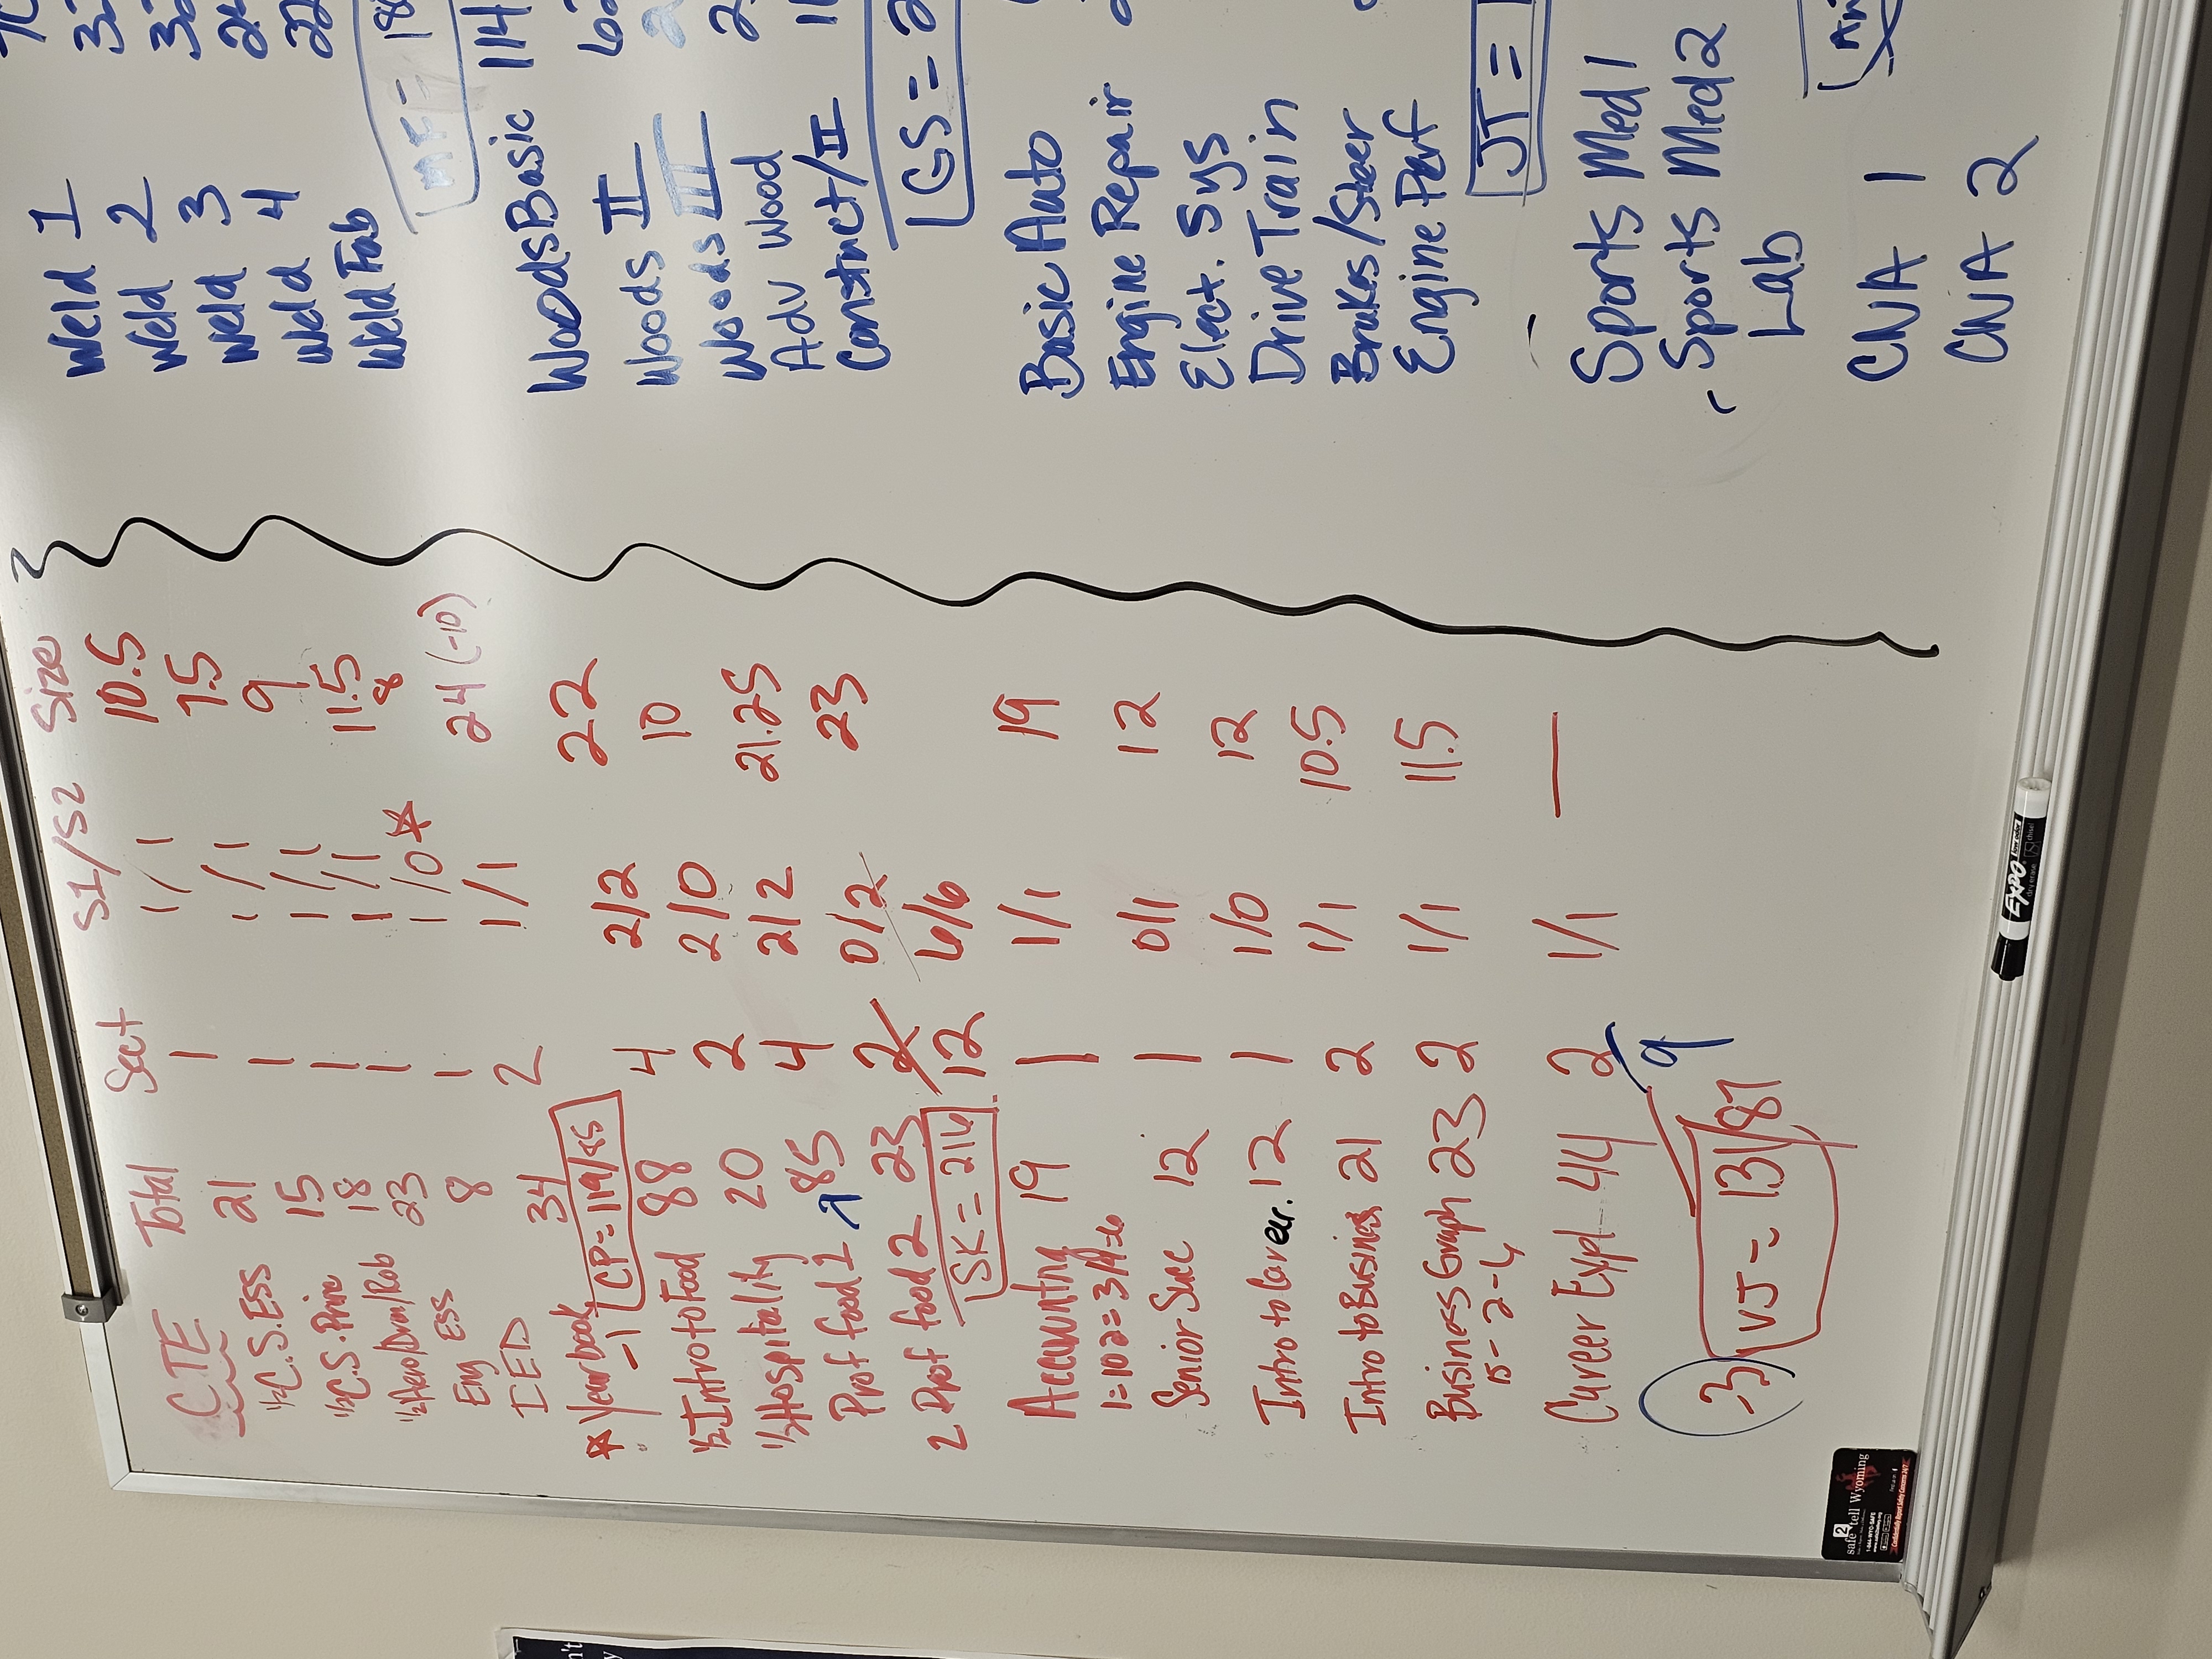 CTE Total Sect S1/S2 Size
½C.S.Ess 21 1 1/1 10.5
½C.S.Prin 15 1 1/1 7.5
½Aero/Dron/Rob 18 1 1/1 9
Eng Ess 23 1 1/1 11.5
IED 8 1 1/0* 8
* Yearbook 34 2 1/1 24 (-10)
-1 CP=119/85
½IntrotoFood 88 4 2/2 22
½Hospitality 20 2 2/0 10
Prof food 1 85 4 2/2 21.25
2 Prof food 2 23 2 0/2 23
SK = 216 12 6/6
Accounting 19 1 1/1 19
1=102=3/4=6
Senior Succ 12 1 0/1 12
Intro to Career. 12 1 1/0 12
Intro to Business 21 2 1/1 10.5
Business Graph 23 2 1/1 11.5
15-2-4
Career Expl 44 2 1/1 —
9
-3 VJ = 131/87
Weld 1
Weld 2
Weld 3
Weld 4
Weld Fab
MF = 18
WoodsBasic 114
Woods II
Woods III
Adv Wood
Construct/II
GS = 2
Basic Auto
Engine Repair
Elect. Sys
Drive Train
Brakes/Steer
Engine Perf
JT =
Sports Med 1
Sports Med 2
Lab
CNA 1
CNA 2
EXPO
low odor
dry erase
chisel
safe2tell Wyoming